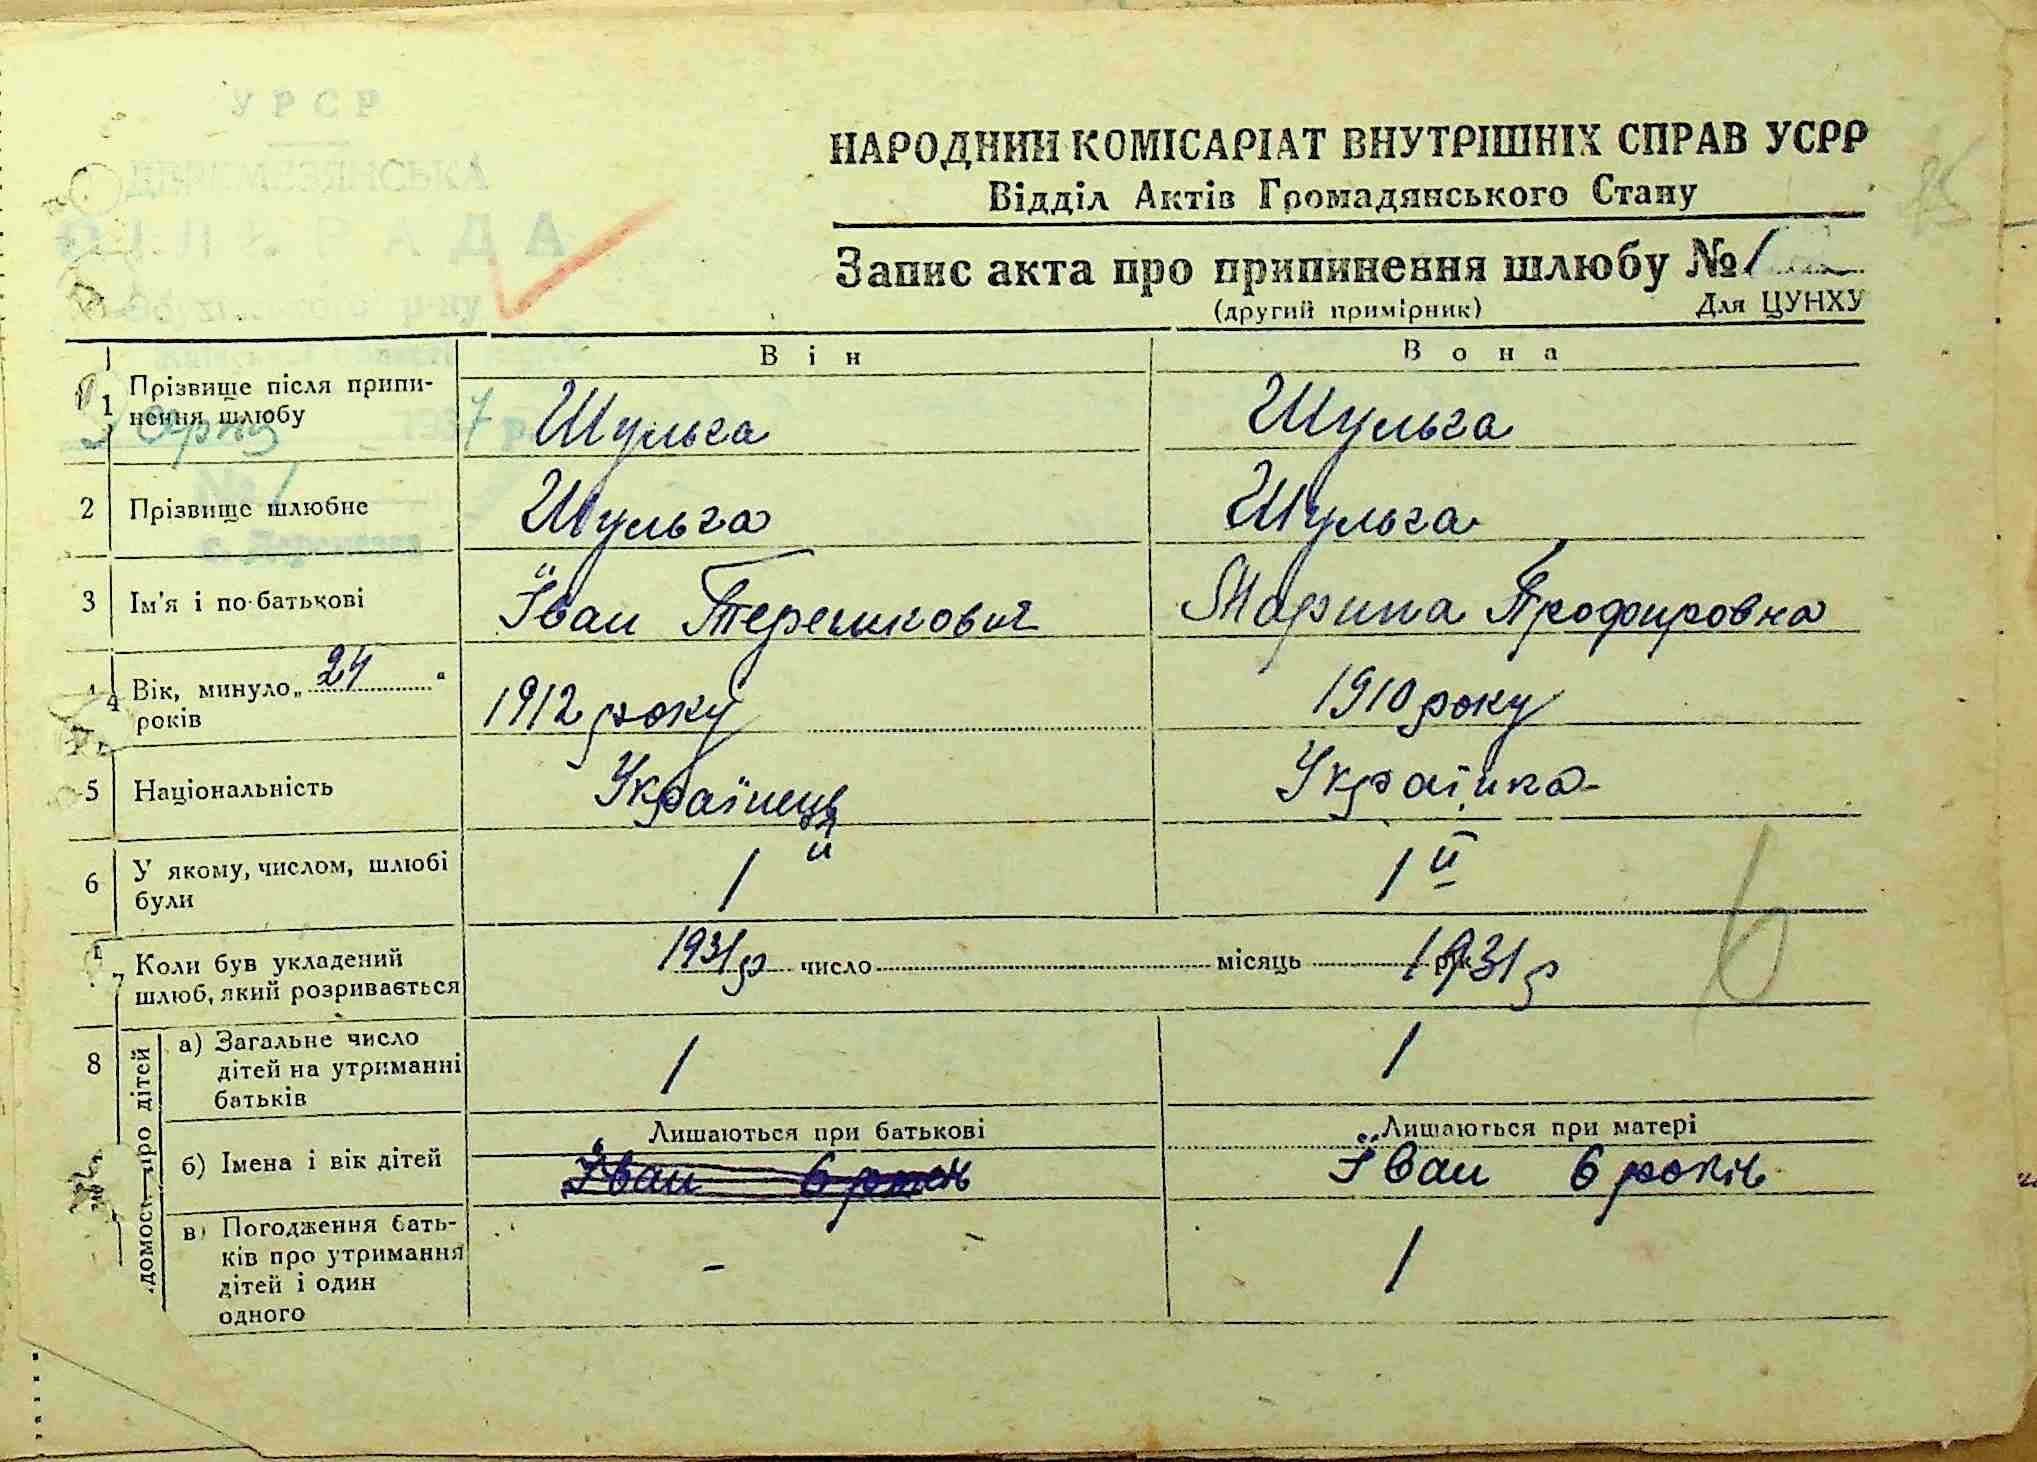 УРСР
ДЕРЕМЕЗЯНСЬКА
СІЛЬРАДА
р-ну
1937 р.
№ 1
с. Деремезна
НАРОДНИЙ КОМІСАРІАТ ВНУТРІШНІХ СПРАВ УСРР
Відділ Актів Громадянського Стану
Запис акта про припинення шлюбу № 1
(другий примірник) Для ЦУНХУ
Він Вона
1 Прізвище після припи-
нення шлюбу Шульга Шульга
2 Прізвище шлюбне Шульга Шульга
3 Ім'я і по-батькові Іван Терешкович Марина Профировна
4 Вік, минуло „ 24 "
років 1912 року 1910 року
5 Національність Українець Українка
6 У якому, числом, шлюбі
були 1й 1й
7 Коли був укладений
шлюб, який розривається 1931р число місяць 1931р
8 домості про дітей
а) Загальне число
дітей на утриманні
батьків 1 1
Лишаються при батькові Лишаються при матері
б) Імена і вік дітей Іван 6 років Іван 6 років
в) Погодження бать-
ків про утримання
дітей і один
одного - 1